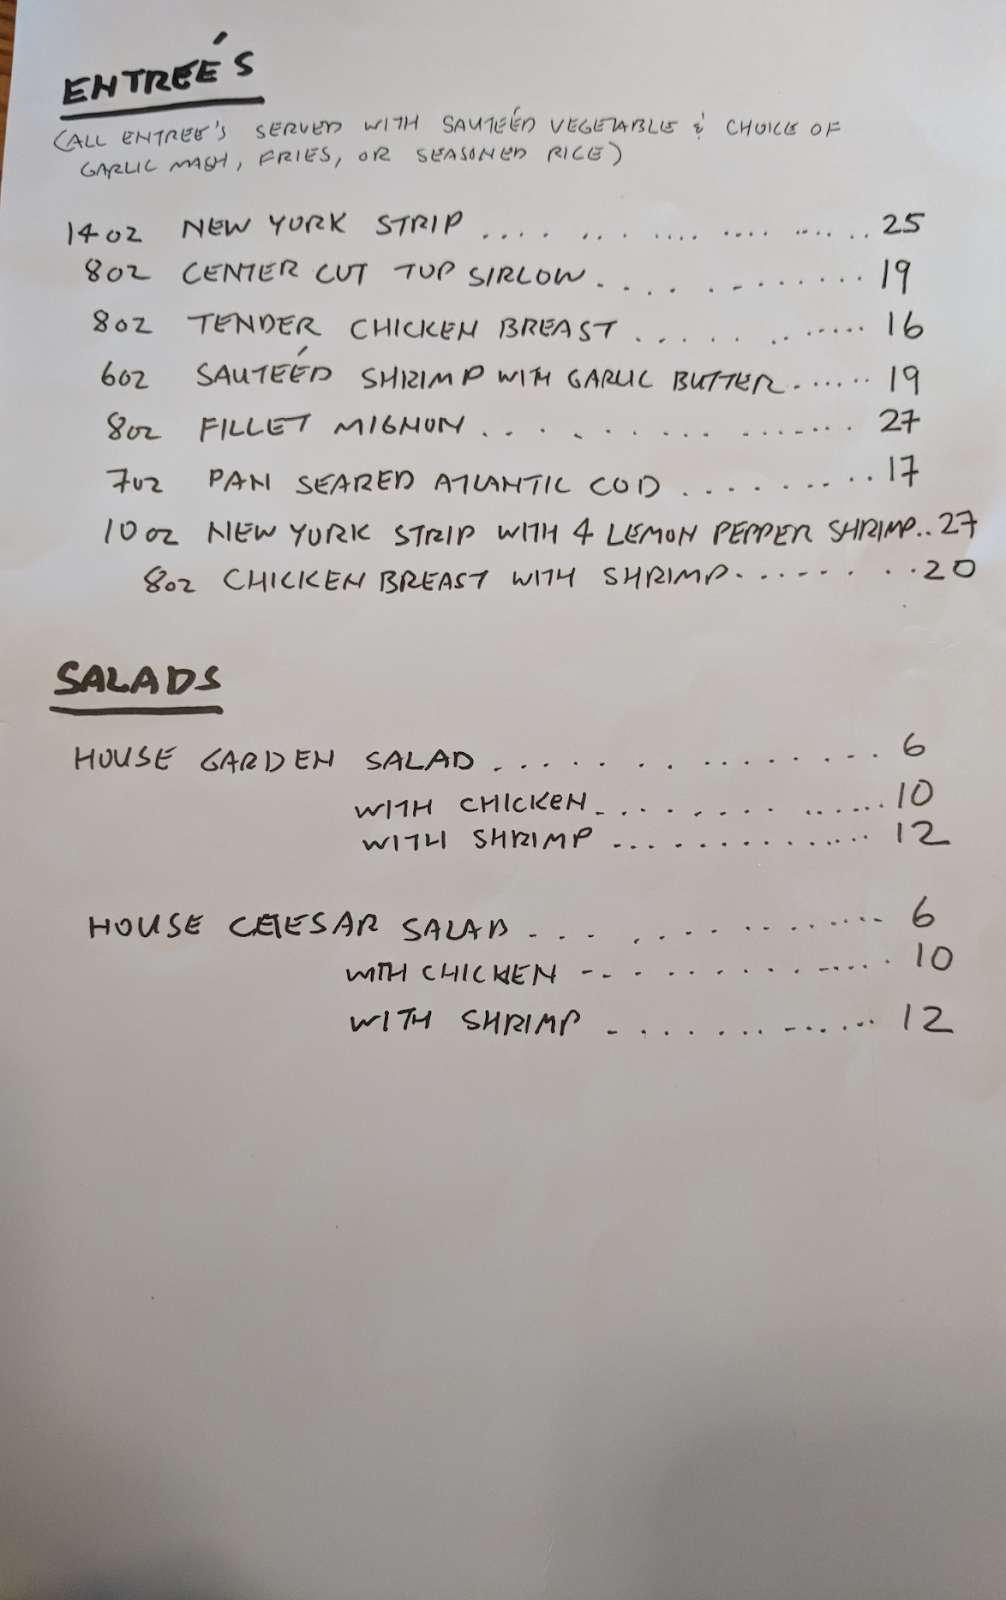 ENTREÉ'S
(ALL ENTREE'S SERVED WITH SAUTEÉD VEGETABLE & CHOICE OF
GARLIC MASH, FRIES, OR SEASONED RICE)
14 OZ NEW YORK STRIP .... .. .... .... ..... .. 25
8OZ CENTER CUT TOP SIRLOIN............ 19
8OZ TENDER CHICKEN BREAST............ 16
6OZ SAUTEÉD SHRIMP WITH GARLIC BUTTER...... 19
8OZ FILLET MIGNON............... 27
7OZ PAN SEARED ATLANTIC COD.......... 17
10 OZ NEW YORK STRIP WITH 4 LEMON PEPPER SHRIMP.. 27
8OZ CHICKEN BREAST WITH SHRIMP......... 20
SALADS
HOUSE GARDEN SALAD............... 6
WITH CHICKEN............... 10
WITH SHRIMP............... 12
HOUSE CEASAR SALAD............... 6
WITH CHICKEN............... 10
WITH SHRIMP............... 12